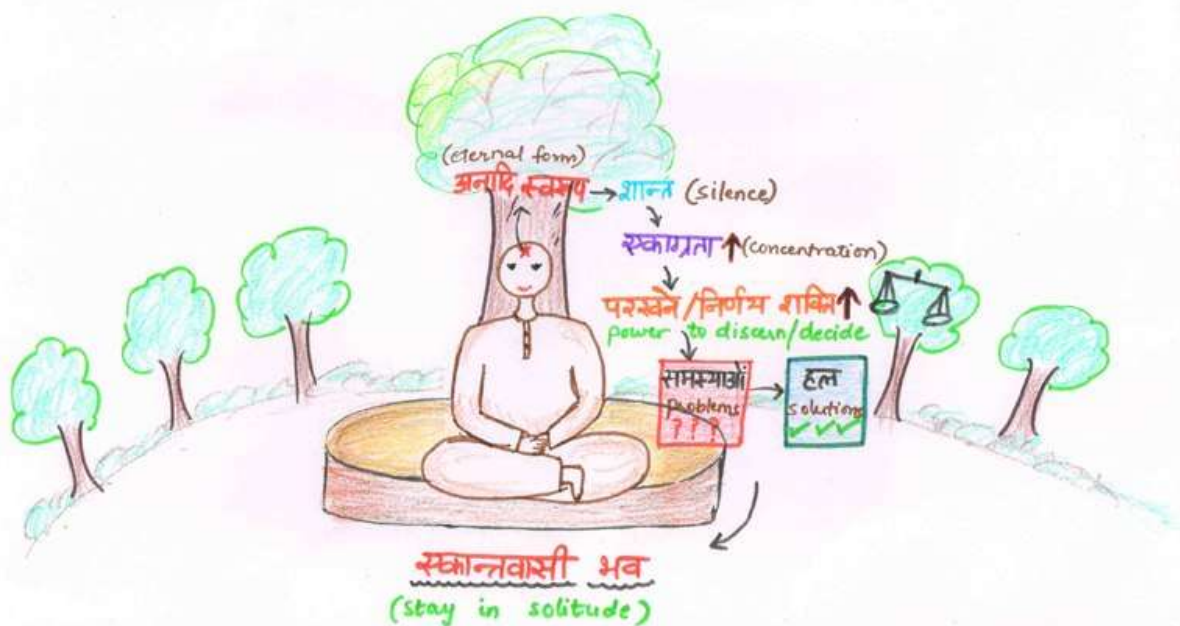 (eternal form)
अनादि स्वरूप → शान्त (silence)
एकाग्रता ↑ (concentration)
परखने/निर्णय शक्ति ↑
power to discern/decide
समस्याओं → हल
problems solutions
? ? ? ✓✓✓
एकान्तवासी भव
(stay in solitude)